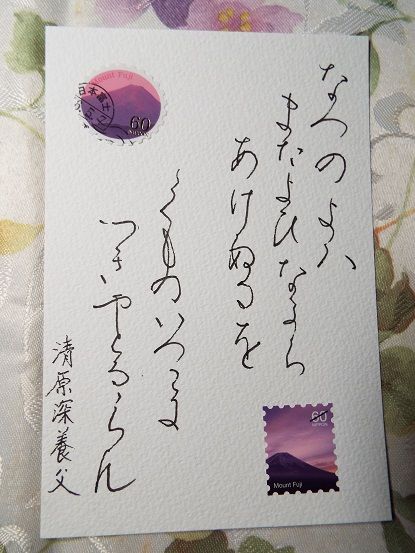 なつのよハ
またよひなから
あけぬるを
くものいつこに
つきやとるらん
清原深養父
Mount Fuji
60
NIPPON
60
NIPPON
Mount Fuji